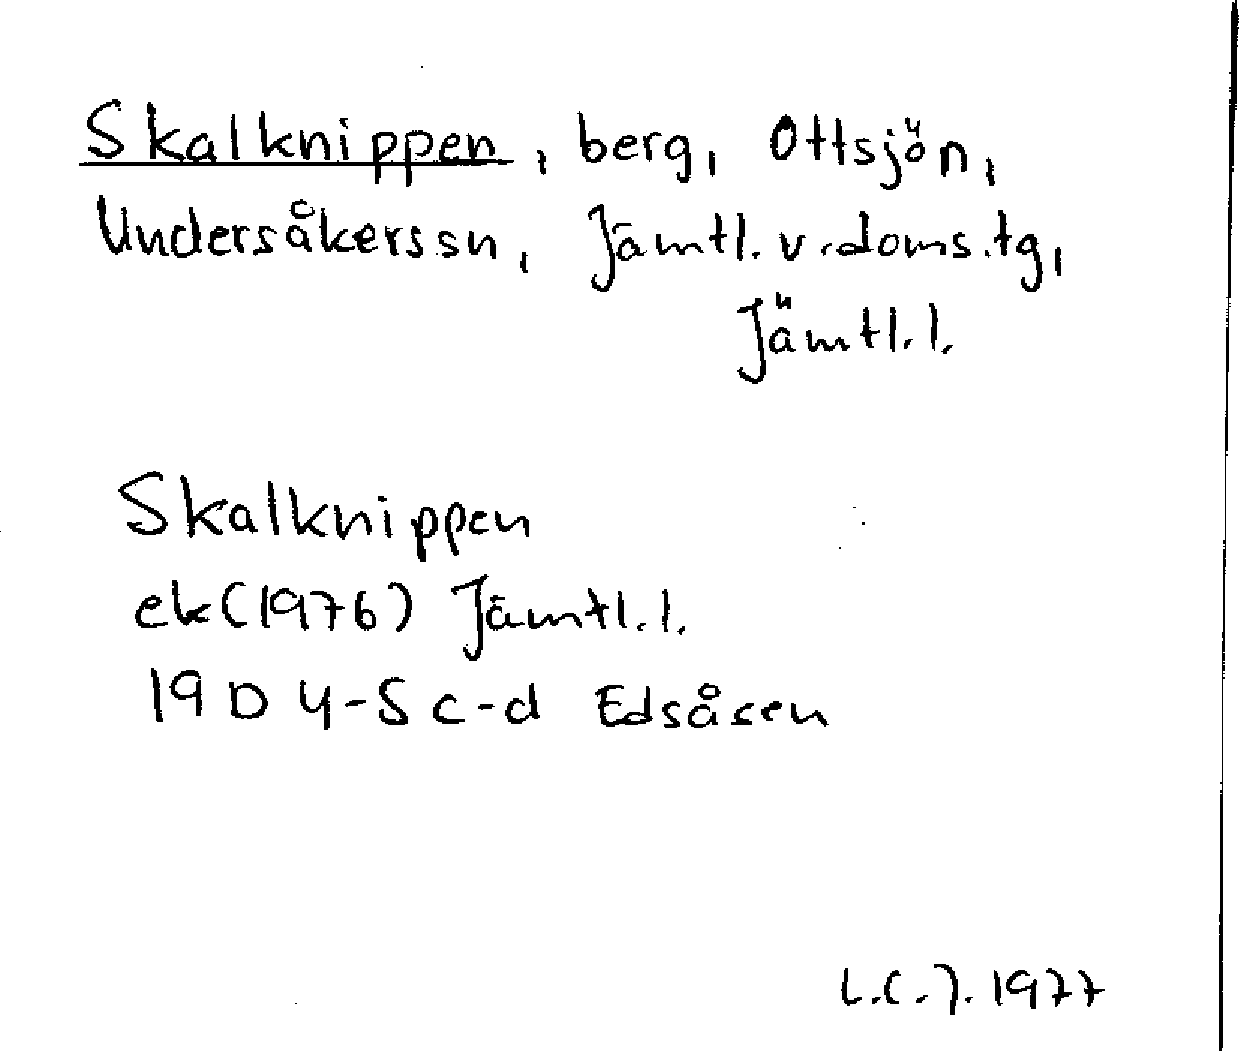 Skalknippen, berg, Ottsjön,
Undersåkers sn, Jämtl. v. doms. tg,
Jämtl. l.
Skalknippen
ek (1976) Jämtl. l.
19D 4-5 c-d Edsåsen
L.C.J. 1977